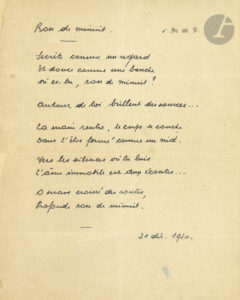 Rose de minuit
à M. de G.
Secrète comme un regard
Et douce comme une bouche
où es-tu, rose de minuit ?
Autour de toi brillent des sources...
La main rentre, le corps se couche
Dans l'être fermé comme un nid.
Vers les silences où tu luis
L'âme immobile est aux écoutes...
O croisé des routes,
Profonde rose de minuit.
31 déc. 1920.